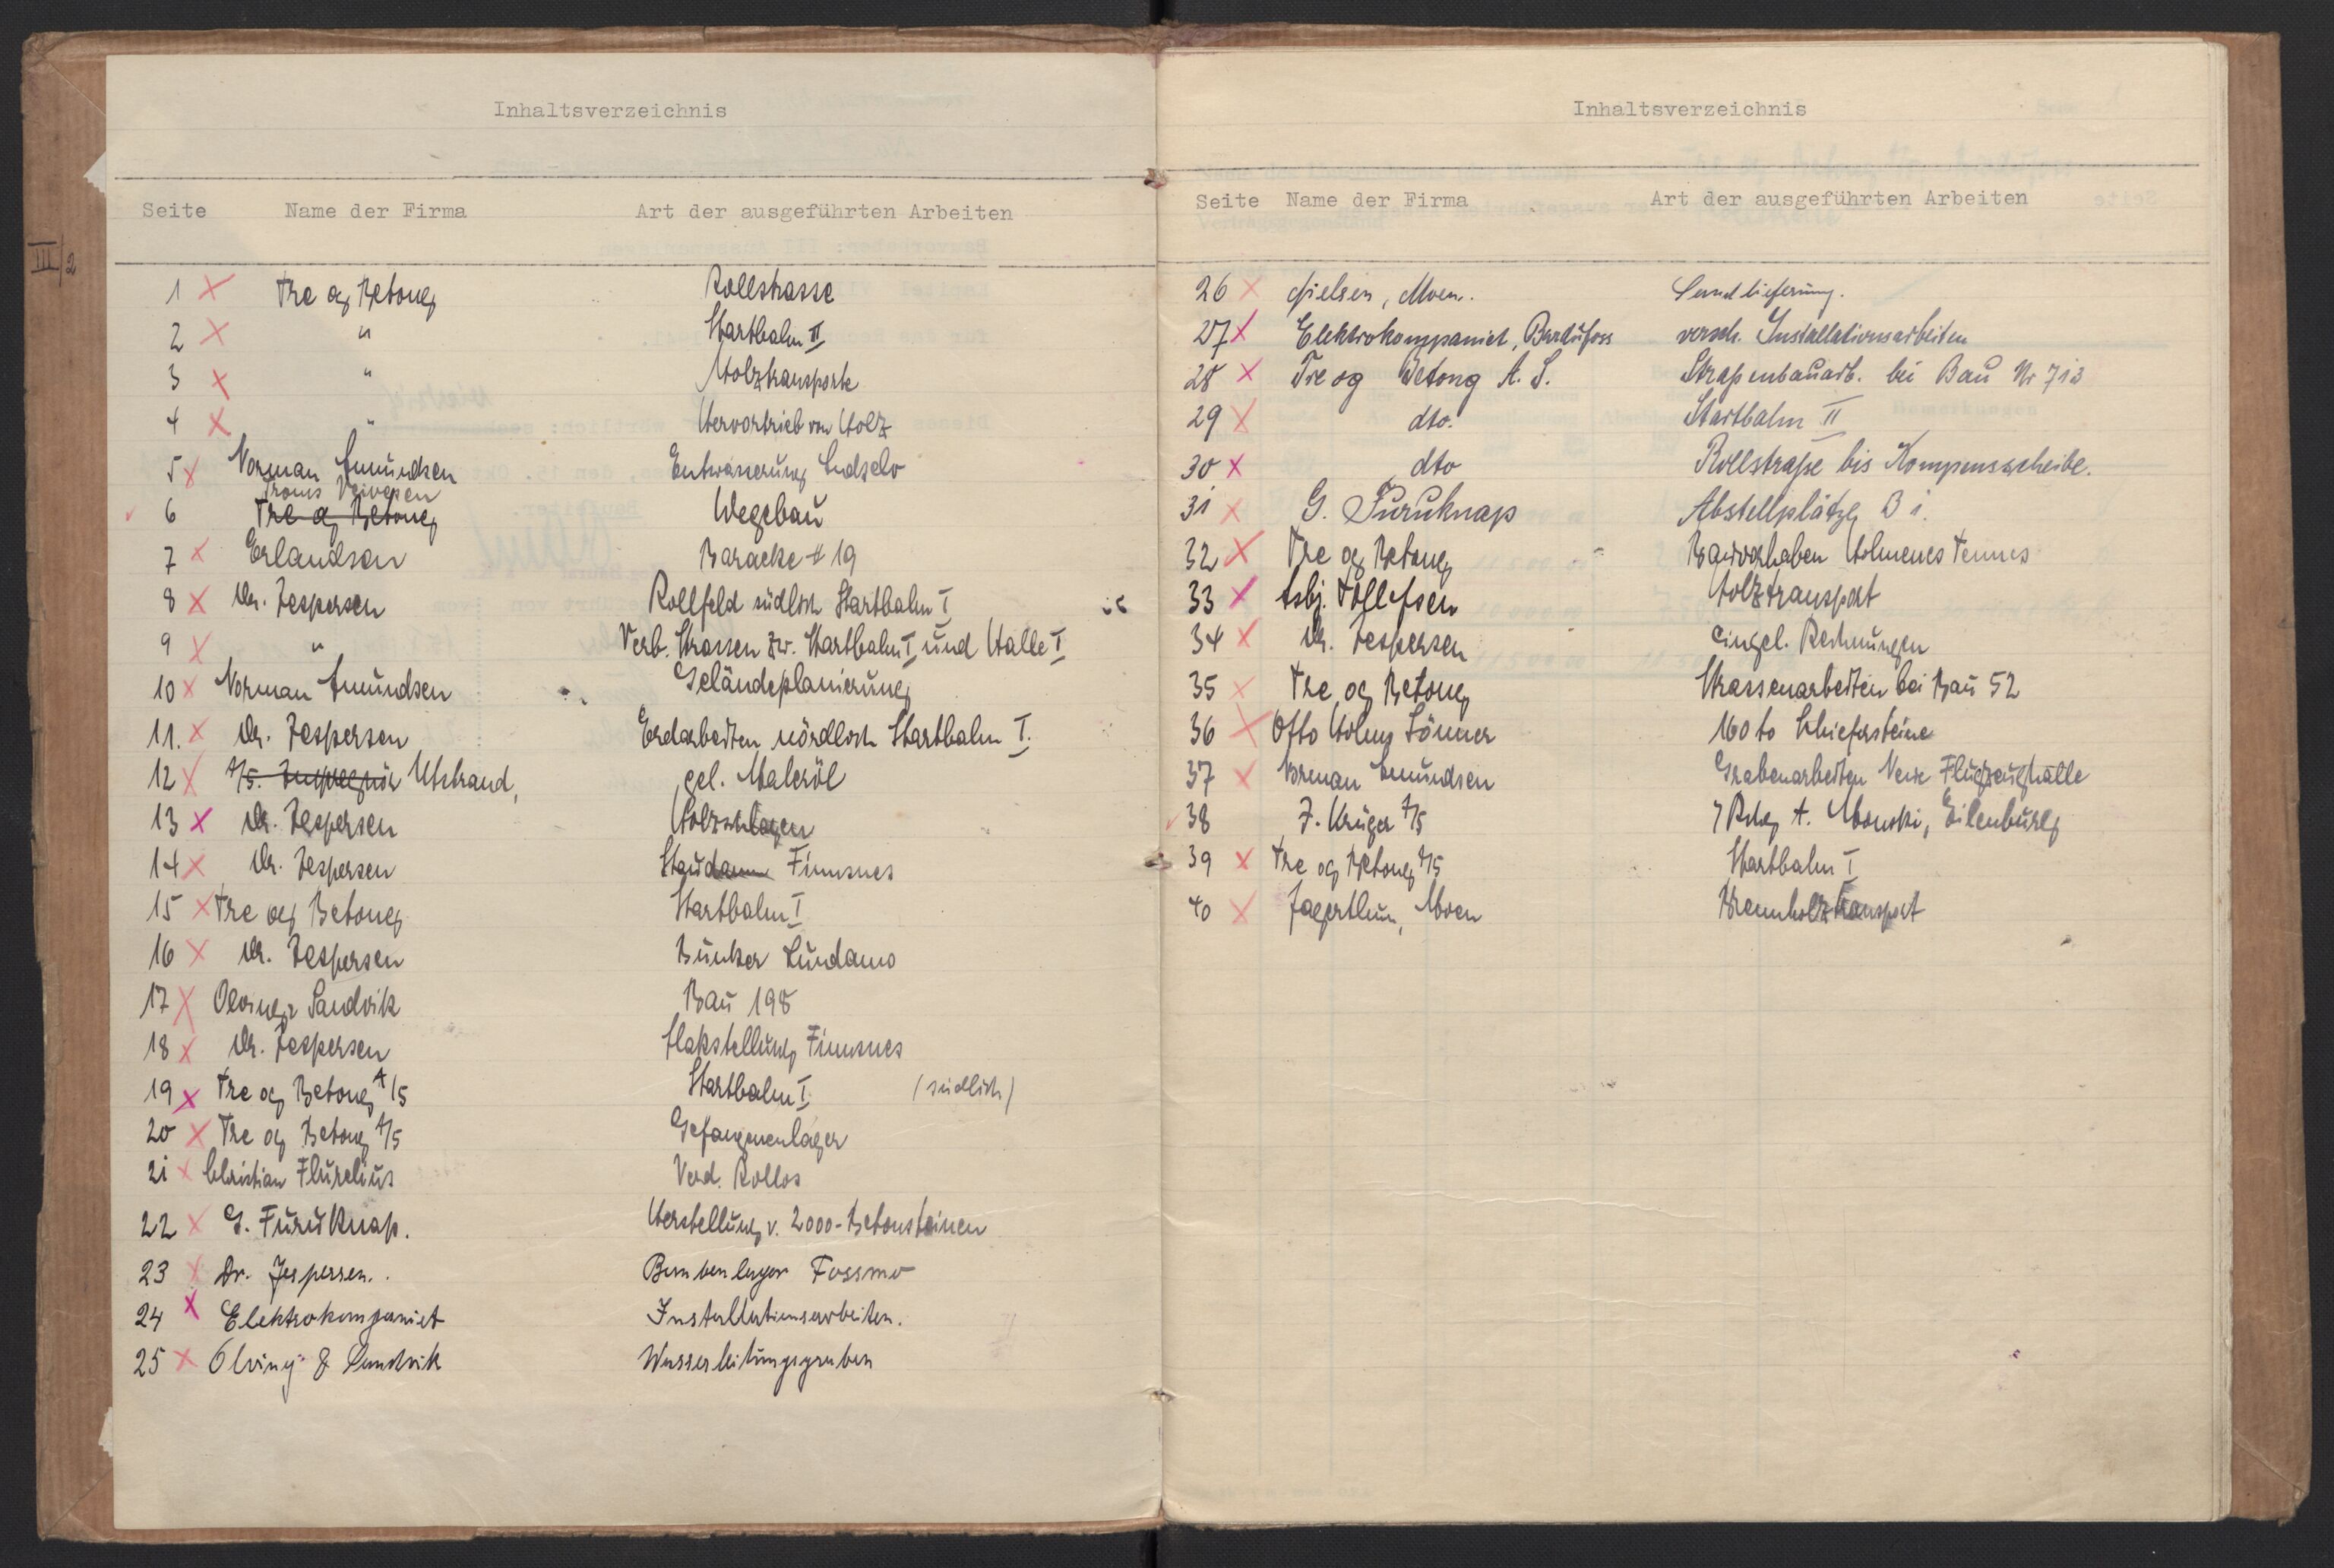 III/2
Inhaltsverzeichnis
Seite Name der Firma Art der ausgeführten Arbeiten
1 X Tre og Betong Rollstrasse
2 X " Startbahn II
3 X " Holztransporte
4 X " Hervortrieb von Holz
5 X Norman Amundsen Entwässerung Andselv
Troms Veivesen
6 Tre og Betong Wegebau
7 X Erlandsen Baracke # 19
8 X Dr. Jespersen Rollfeld südlich Startbahn I
9 X " Verb. Strassen zw. Startbahn I und Halle I
10 X Norman Amundsen Geländeplanierung
11. X Dr. Jespersen Erdarbeiten nördlich Startbahn I.
12 X A/S. Utstrand, gel. Maleröl
13 X Dr. Jespersen Holzschlagen
14 X Dr. Jespersen Staudamm Finnsnes
15 X Tre og Betong Startbahn I
16 X Dr. Jespersen Bunker Lundamo
17 X Sandvik Bau 198
18 X Dr. Jespersen Flakstellung Finnsnes
19 X Tre og Betong A/S Startbahn I (südlich)
20 X Tre og Betong A/S Gefangenenlager
21 X Christian Verd. Rollos
22 X G. Furuknap. Herstellung v. 2000 - Betonsteinen
23 X Dr. Jespersen. Bombenlager Fossmo
24 X Elektrokompaniet Installationsarbeiten.
25 X Olving & Sandvik Wasserleitungsgraben
Inhaltsverzeichnis
Seite Name der Firma Art der ausgeführten Arbeiten
26 X Nielsen, Moen. Sandlieferung.
27 X Elektrokompaniet, Bardufoss versch. Installationsarbeiten
28 X Tre og Betong A.S. Straßenbauarb. bei Bau Nr 713
29 X dto. Startbahn II
30 X dto Rollstraße bis Kompensscheibe.
31 X G. Furuknap Abstellplätze B 1.
32 X Tre og Betong Bauvorhaben Holmenes Tennes
33 X Asbj. Tollefsen Holztransport
34 X Dr. Jespersen einzel. Rechnungen
35 X Tre og Betong Strassenarbeiten bei Bau 52
36 X Otto Holms Sönner 160 to Schiefersteine
37 X Norman Amundsen Grabenarbeiten Neue Flugzeughalle
38 J. Krüger A/S Eilenburg
39 X Tre og Betong A/S Startbahn I
40 X Jagerthun, Moen Brennholztransport